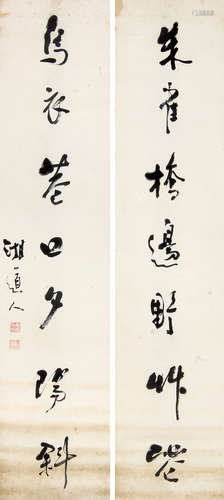 朱雀橋邊野艸花
烏衣巷口夕陽斜
道人